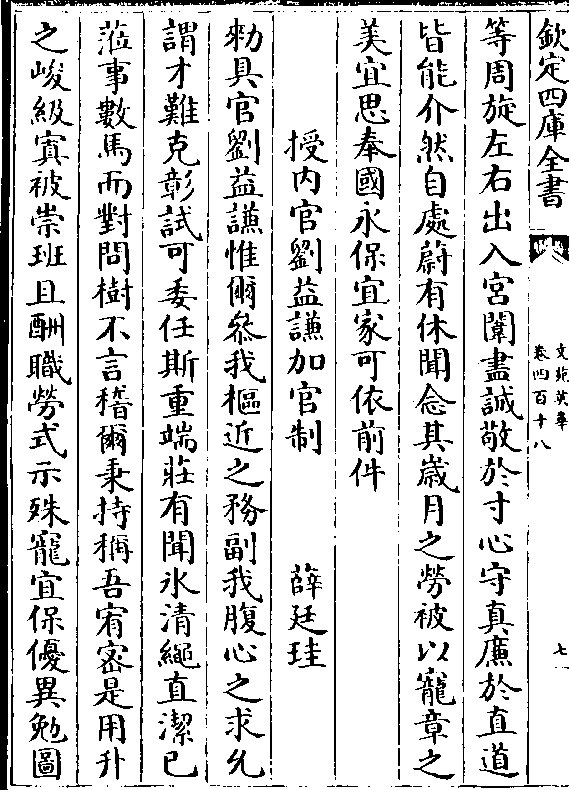 欽定四庫全書
文苑英華
卷四百十八
七
等周旋左右出入宮闈盡誠敬於寸心守真廉於直道
皆能介然自處蔚有休聞念其歲月之勞被以寵章之
美宜思奉國永保宜家可依前件
授内官劉益謙加官制
薛廷珪
勑具官劉益謙惟爾叅我樞近之務副我腹心之求允
謂才難克彰試可委任斯重端莊有聞氷清繩直潔已
蒞事數馬而對問樹不言稽爾秉持稱吾宥宻是用升
之峻級寘被崇班且酬職勞式示殊寵宜保優異勉圖